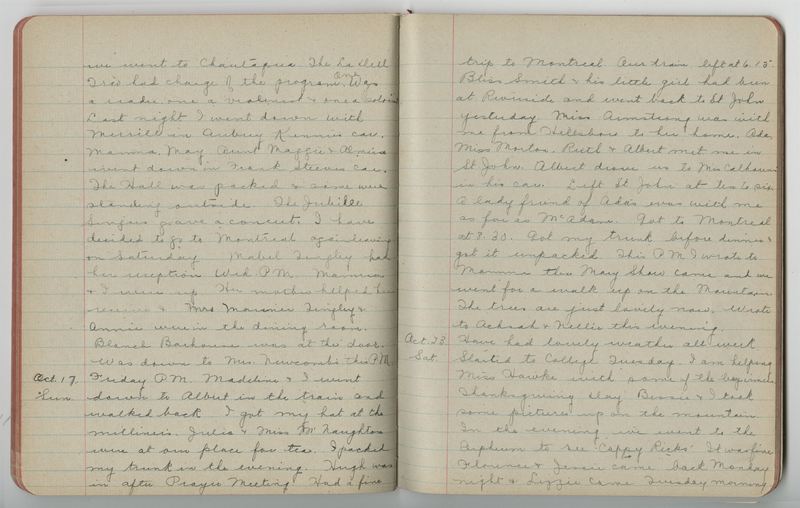 we went to Chautaqua The La Dell
Trio had charge of the program, one was
a reader one a violinist & one a soloist
Last night I went down with
Merrill in Aubrey Kennie's car.
Mamma, May, Aunt Maggie & Almira
went down in Frank Steeves car.
The Hall was packed & some were
standing outside. The Jubilee
Singers gave a concert. I have
decided to go to Montreal again leaving
on Saturday. Mabel Tingley had
her reception Wed. P.M. Mamma
& I were up Her mother helped her
receive & Mrs Mariner Tingley &
Annie were in the dining room.
Blanch Barhouse was at the door.
Was down to Mrs. Newcombs this P.M.
Oct. 17. Friday P.M. Madeline & I went
Sun. down to Albert in the train and
walked back I got my hat at the
milliners. Julia & Miss McNaughton
were at our place for tea. I packed
my trunk in the evening. Hugh was
in after Prayer Meeting. Had a fine
trip to Montreal. Our train left at 6.15.
Bliss Smith & his little girl had been
at Riverside and went back to St John
yesterday Miss Armstrong was with
me from Hillsboro to her home. Ada,
Miss Morton, Ruth & Albert met me in
St John. Albert drove us to Mrs Calhouns
in his car. Left St. John at ten to six.
A lady friend of Ada's was with me
as far as McAdam. Got to Montreal
at 8.30. Got my trunk before dinner &
got it unpacked. This P.M I wrote to
Mamma then Mary Shaw came and we
went for a walk up on the Mountain.
The trees are just lovely now. Wrote
to Achsah & Nellie this evening.
Oct. 23. Have had lovely weather all week.
Sat. Started to College Tuesday. I am helping
Miss Hawke with some of the beginners
Thanksgiving day Bessie & I took
some pictures up on the mountain.
In the evening we went to the
Orpheum to see "Cappy Ricks" It was fine
Florence & Jessie came back Monday
night & Lizzie came Tuesday morning